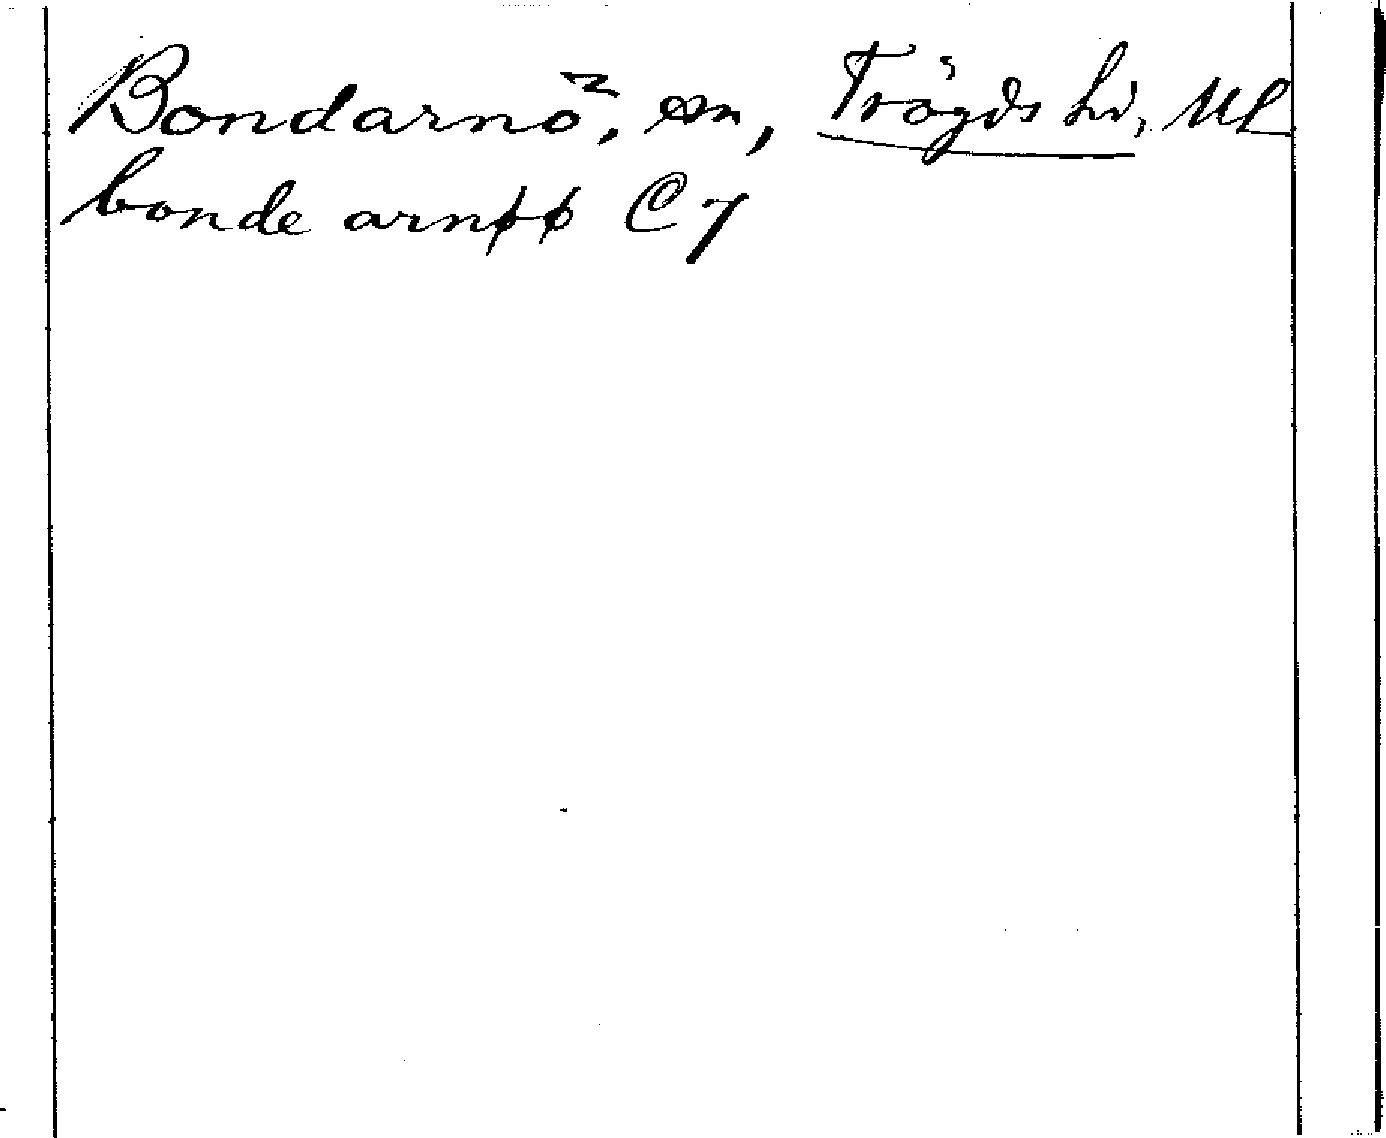 Bondarnö, en, Trögds hd, UL
bonde arnøø C7